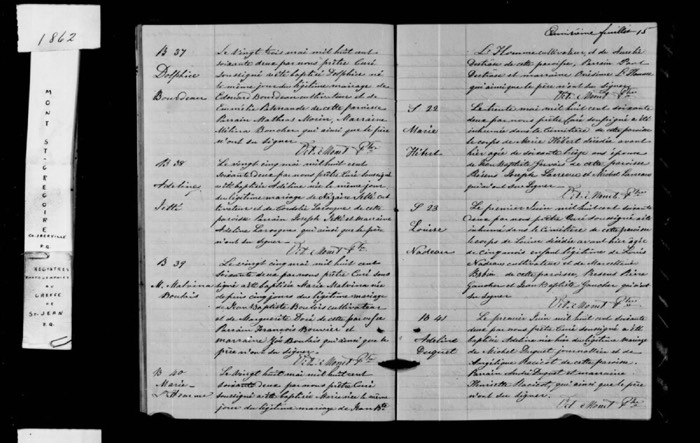 1862
MONT ST-GREGOIRE
CO. IBERVILLE
P.Q.
REGISTRES
GREFFE
ST-JEAN
P.Q.
B 37
Dolphice
Bourdeau
Le vingt trois mai mil huit cent
soixante deux par nous prêtre Curé
soussigné a été baptisé Dolphice né
le même jour du légitime mariage de
Edouard Bourdeau cultivateur et de
de cette paroisse
Parrain Mathias Morin, Marraine
Boucher qui ainsi que le père
n'ont su signer.
Vct. Mont Ptre
B 38
Adeline
Jetté
Le vingt cinq mai mil huit cent
soixante deux par nous prêtre Curé soussigné
a été baptisée Adeline née le même jour
du légitime mariage de Jetté cul
tivateur et de Cordélie Larocque de cette
paroisse Parrain Joseph Jetté et marraine
Adeline Larocque qui ainsi que le père
n'ont su signer.
Vct. Mont Ptre
B 39
M. Malvina
Boulais
Le vingt cinq mai mil huit cent
soixante deux par nous prêtre Curé sous
signé a été baptisée Marie Malvina née
depuis cinq jours du légitime mariage
de Jean Baptiste Boulais cultivateur
et de Marguerite de cette paroisse
Parrain François et
marraine Boulais qui ainsi que le
père n'ont su signer.
Vct. Mont Ptre
B 40
Marie
L'Homme
Le vingt huit mai mil huit cent
soixante deux par nous prêtre Curé
soussigné a été baptisée Marie née le même
jour du légitime mariage de Jean Bte
feuillet 15
L'Homme cultivateur, et de
de cette paroisse, Parrain Paul
et marraine L'Homme
qui ainsi que le père n'ont su signer.
Vct. Mont Ptre
S 22
Marie
Hébert
Le trente mai mil huit cent soixante
deux par nous prêtre Curé soussigné a été
inhumé dans le Cimetière de cette paroisse
le corps de Marie Hébert décédée avant
hier agée de soixante treize ans épouse
de Jean Baptiste Gervais de cette paroisse
Présens Joseph et Michel
qui n'ont su signer
Vct. Mont Ptre
S 23
Louise
Nadeau
Le premier Juin mil huit cent soixante
deux par nous prêtre Curé soussigné a été
inhumé dans le Cimetière de cette paroisse
le corps de Louise décédée avant hier agée
de cinq mois enfant légitime de Louis
Nadeau cultivateur et de
de cette paroisse, Présens Pierre
Gaucher et Jean Baptiste Gaucher qui n'ont
su signer.
Vct. Mont Ptre
B 41
Adeline
Duquet
Le premier Juin mil huit cent soixante
deux par nous prêtre Curé soussigné a été
baptisée Adeline née hier du légitime mariage
de Michel Duquet journalier et de
Angélique Raciot de cette paroisse
Parrain André Duquet et marraine
Henriette Raciot, qui ainsi que le père
n'ont su signer.
Vct. Mont Ptre